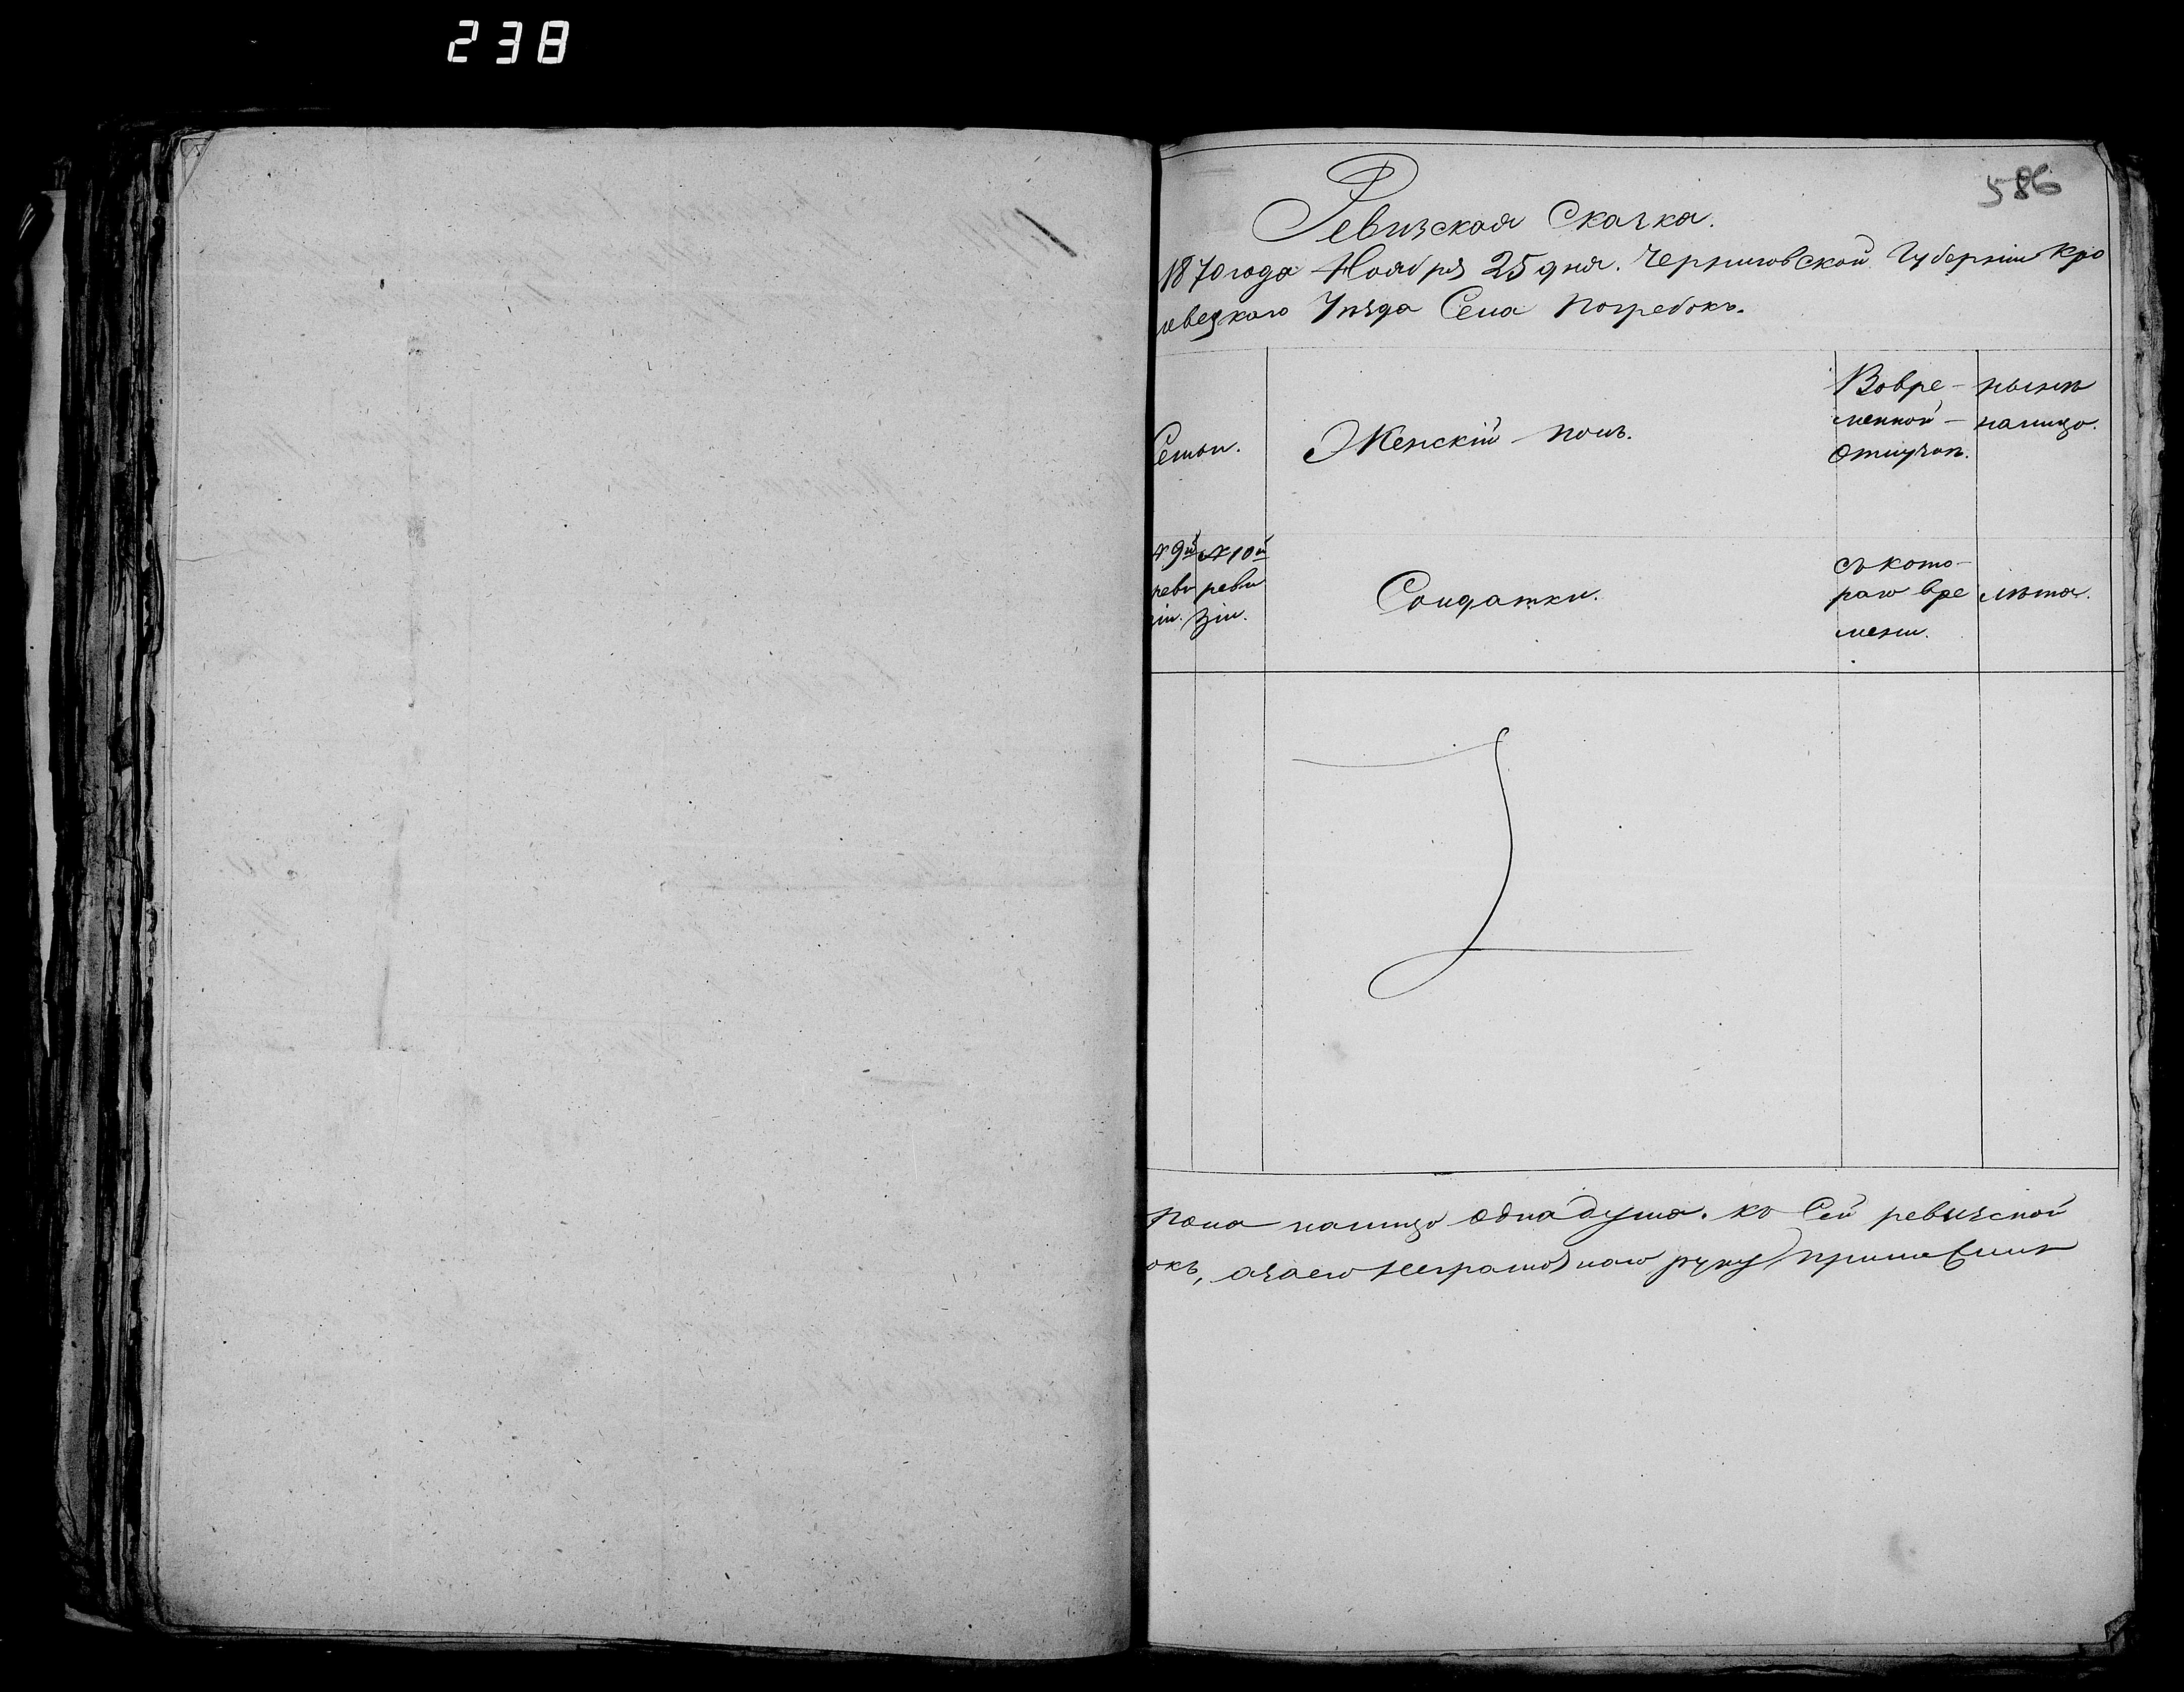 238
586
Ревизская Сказка.
1870 года Ноября 25 дня. Черниговской Губерніи Кро
левецкого Уѣзда Села Погребокъ.
Семьи.
Женскій полъ.
Вовре-
менной
отлучкѣ.
нынѣ
налицо.
№ 9й
реви
зіи.
№ 10й
реви
зіи.
Солдатки.
съ кото-
раго вре
мени.
лѣта.
пола налицо одна душа. ко Сей ревизской
окъ, азаего Неграмотнаго руку